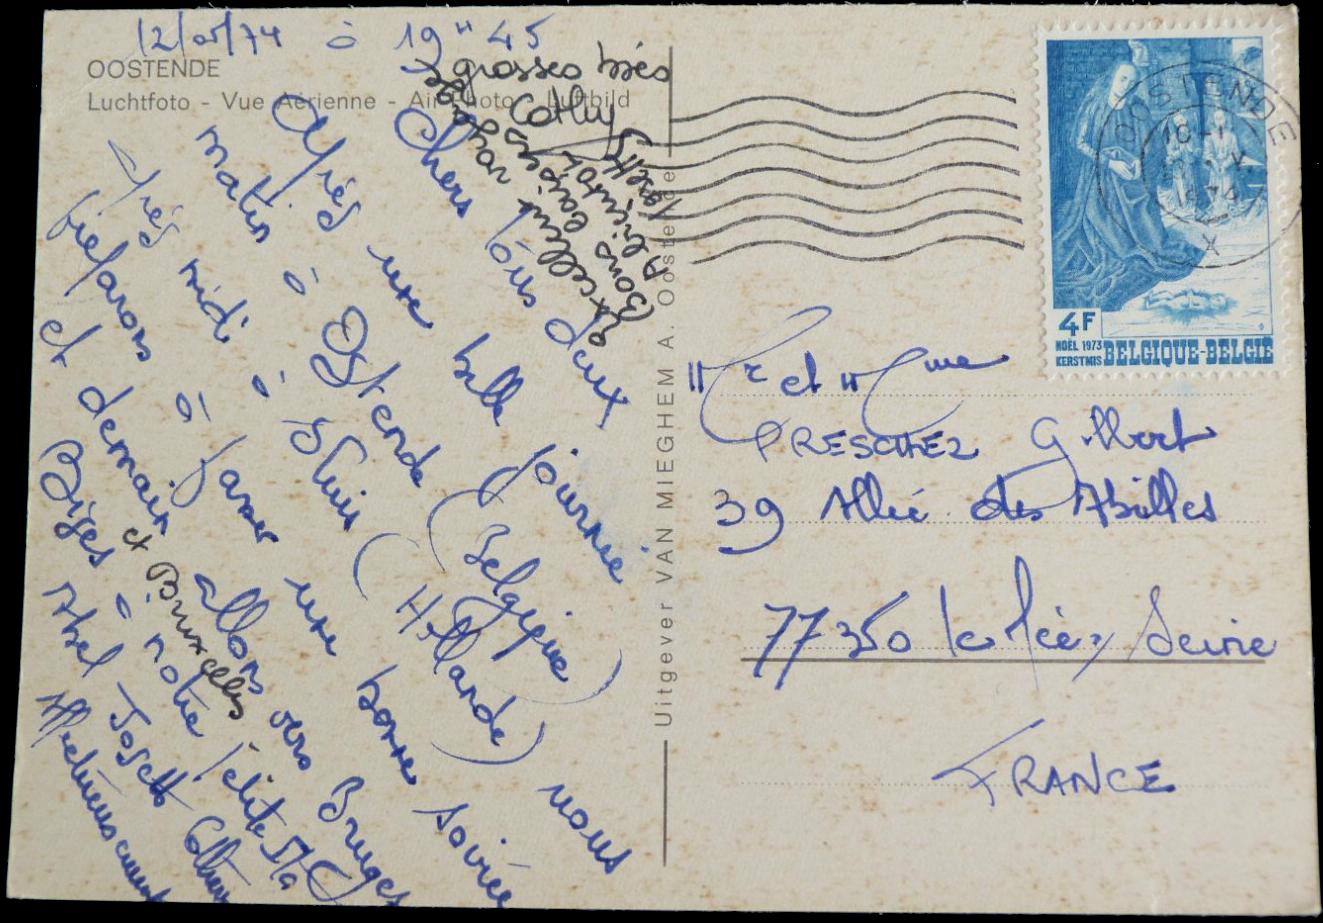 12/05/74 à 19H45
OOSTENDE
Luchtfoto - Vue Aérienne - Air Photo - Luftbild
grosses bises
Cathy
Chers tous deux
Après une belle journée
matin à Ostende (Belgique)
Après midi à Sluis (Hollande) nous
préparons à passer une bonne soirée
et demain allons vers Bruges
et Bruxelles
Bises à notre petite
Abel Josette Cathy
Affectueusement
excellent voyage
Bons baisers
Josette
Uitgever VAN MIEGHEM A. Oostende
OOSTENDE
1974
X
4F
NOËL 1973
KERSTMIS
BELGIQUE-BELGIË
Mr et Mme
PRESCHEZ Gilbert
39 Allée des Abeilles
77350 le Mée s/ Seine
FRANCE